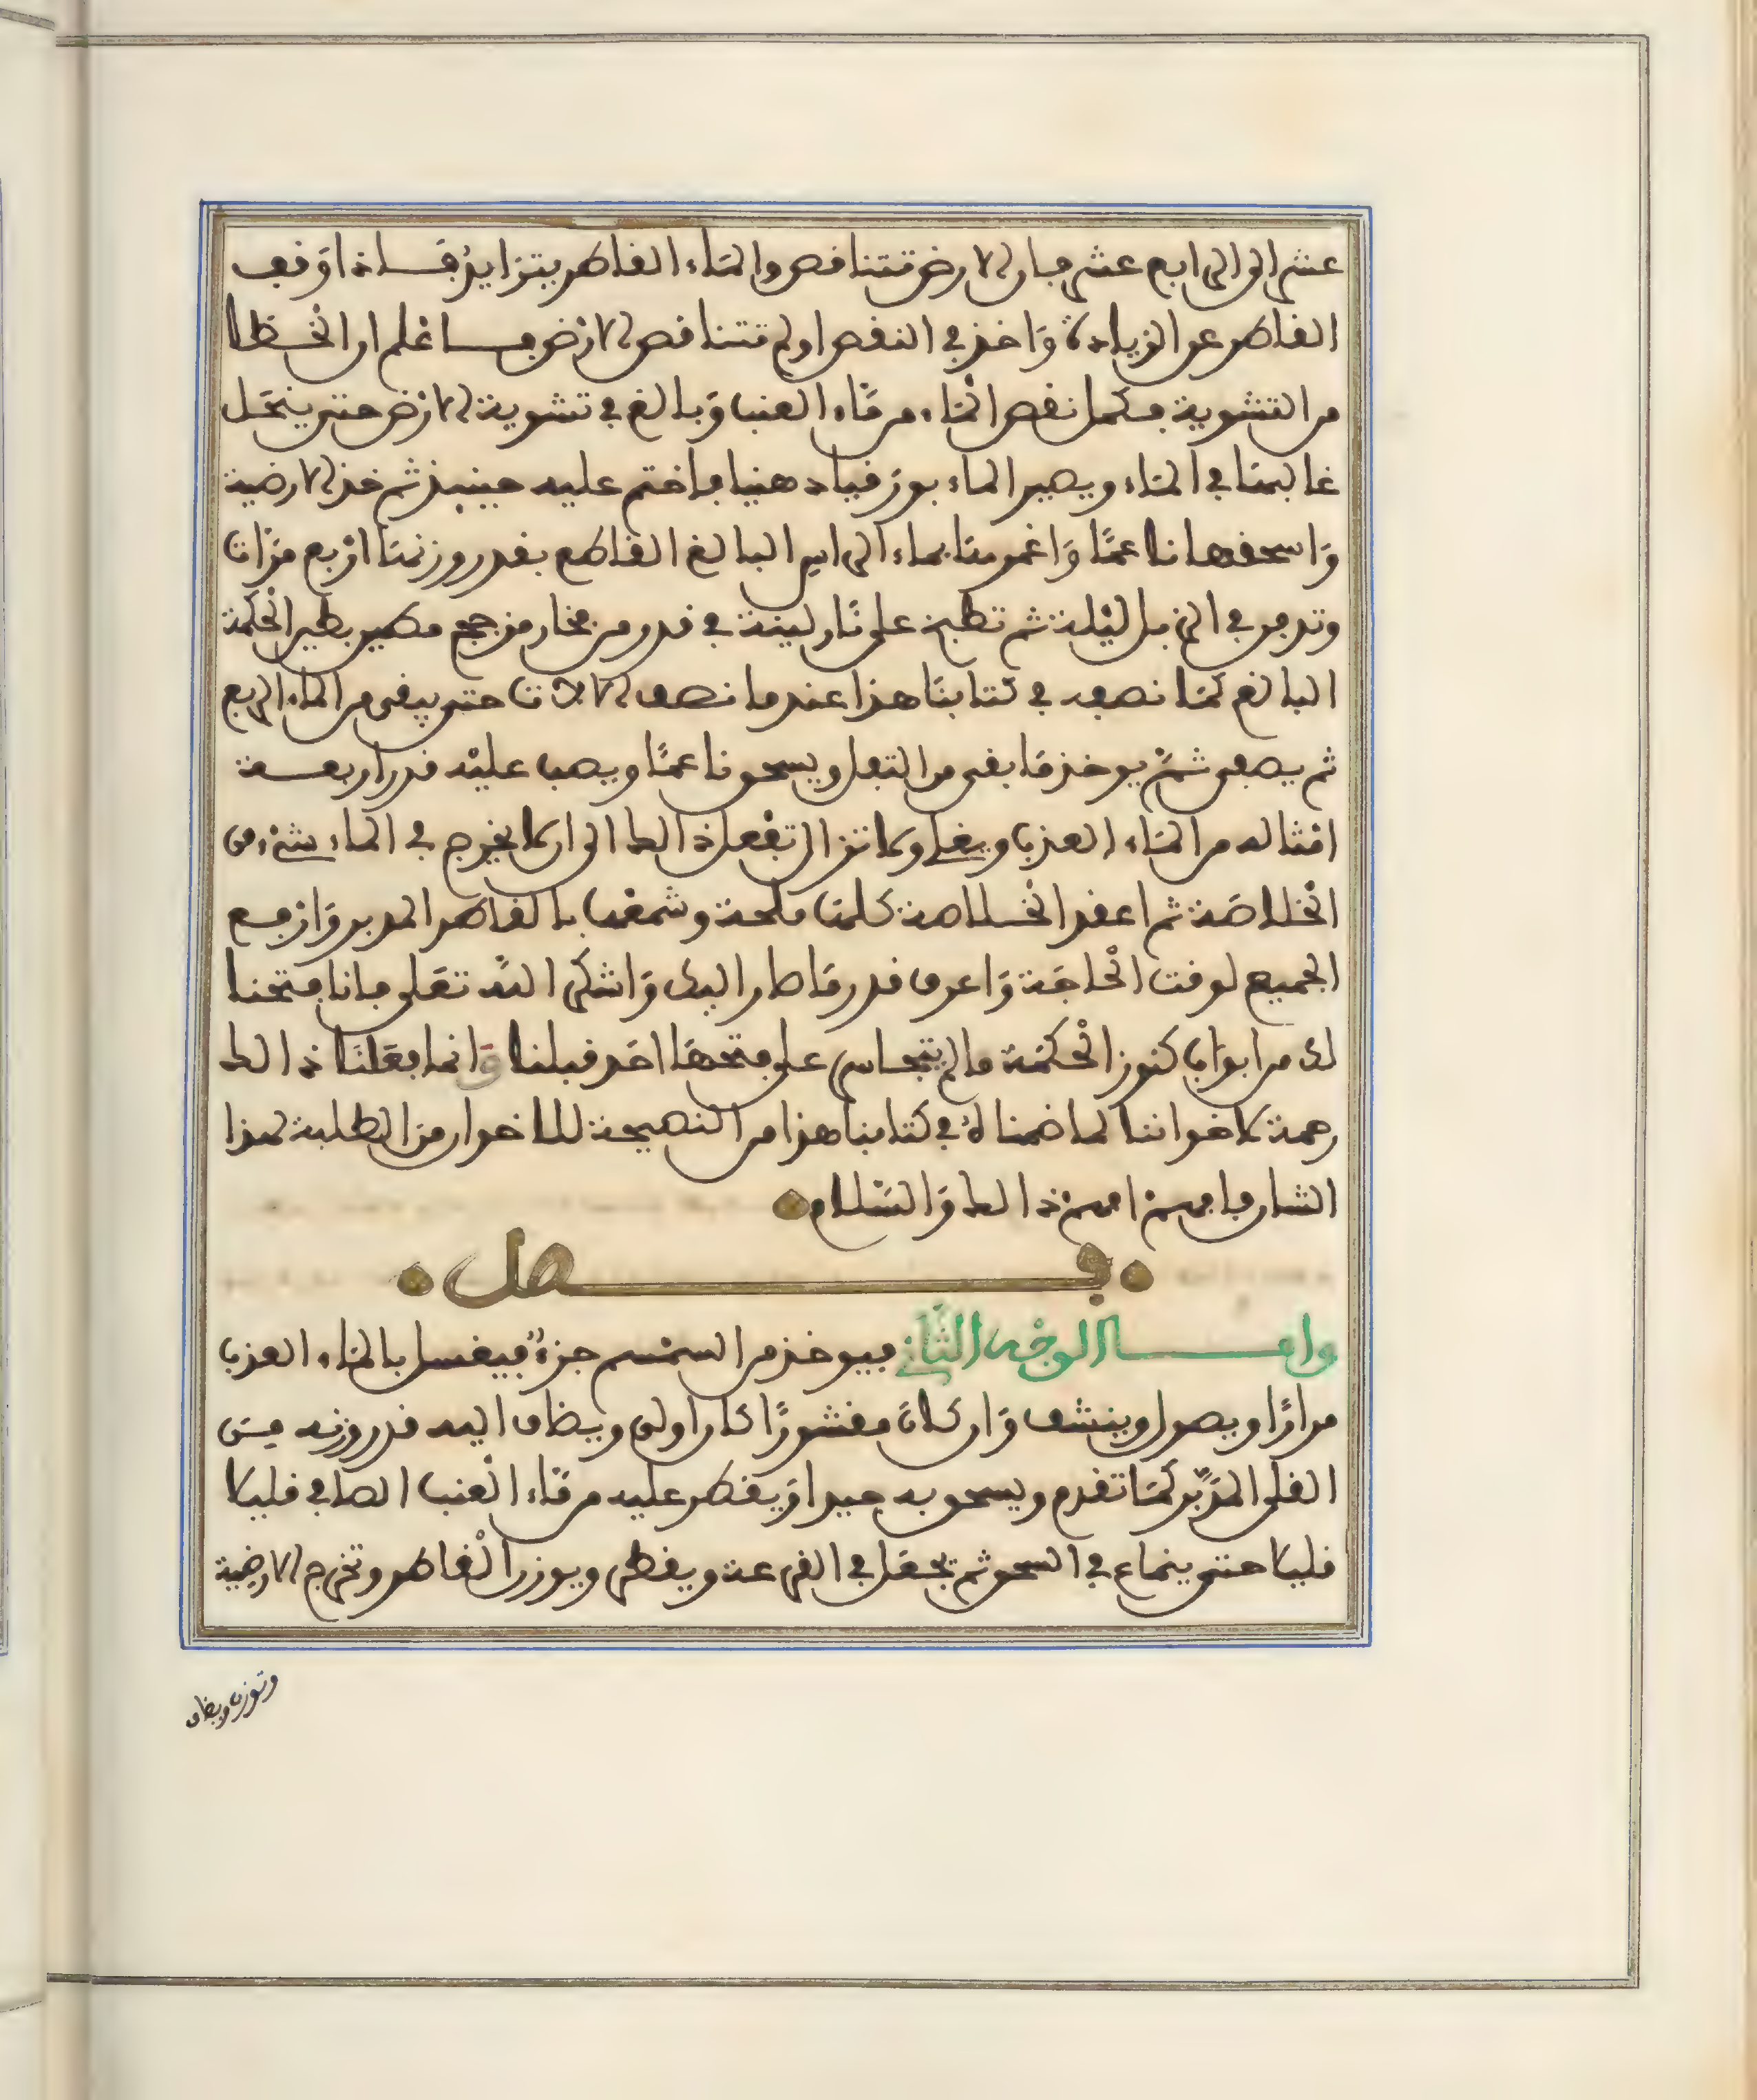 عشر الى الرابع عشر فان الارض تتناقص والماء القاطر يتزايد فـاذا وقف
القاطر عن الزيادة وَاخذ في النقص او لم تتناقص الارض فـاعْلم ان الْخطا
من التشوية فكمل نقص الْماء من مَاء العنب وَبالغ في تشوية الارض حتى ينحَل
غالبهَا في الماء ويصير الماء بورقيا دهنيا فاختم عليه حينيذ ثم خذ الارضية
وَاسحقها ناعمًا وَاغمرهَا بماء الراس البالغ القاطع بقدر وزنهَا ارْبع مرَّات
وتدفن في الزبل ليْلة ثم تطبخ على نَار لينة في قدر من فخار مزجج مطين بطين الْحكمة
البالغ كمَا نصفه في كتابنَا هذا عند ما نصف الالات حتى يبقى من الماء الربع
ثم يصفى ثمَّ يوخذ مَا بقى من التفل ويسحق ناعمًا ويصب عليْه قدر اربعـة
امْثاله من المَاء العذب ويغلى ولا تزال تفْعل ذالك الى ان لا يخرج في الماء شيْء من
الْخلاصَة ثم اعقد الْخـلاصة كلهَا ملحة وشمعْها بالقاطر المدبر وَارفـع
الجميع لوقت الْحاجَة وَاعرف قدر مَا صار اليك وَاشكر اللّه تعَلى فانا فتحنا
لك من ابوَاب كنوز الْحكمَة ما لم يتجـاسر على فتحهَا احَد قبلنا وَانما فعَلنَا ذالك
رحمة لاخواننا لما ضمنا لك في كتابنا هذا من النصيحة للاخوان من الطلبة لهذا
الشان فافهـم افهمْ ذالك وَالسَّلام
فـصل
وامـا الوجْه الثَّاني فيوخذ من السمْسم جزءٌ فيغسل بالمَاء العذب
مرارًا ويصول وينشف وَان كانَ مقشورًا كان اولى ويضاف اليه قدر وزنه مـن
القلى المدَبَّر كمَا تقدم ويسحق به جيدا وَيقطر عليه من مَاء الْعنب الصافي قليلا
قليلا حتى ينماع في السحق ثم يجْعَل في القرعة ويقطر ويوزن الْقاطر وتخرج الارضية
وتوزن ويضاف